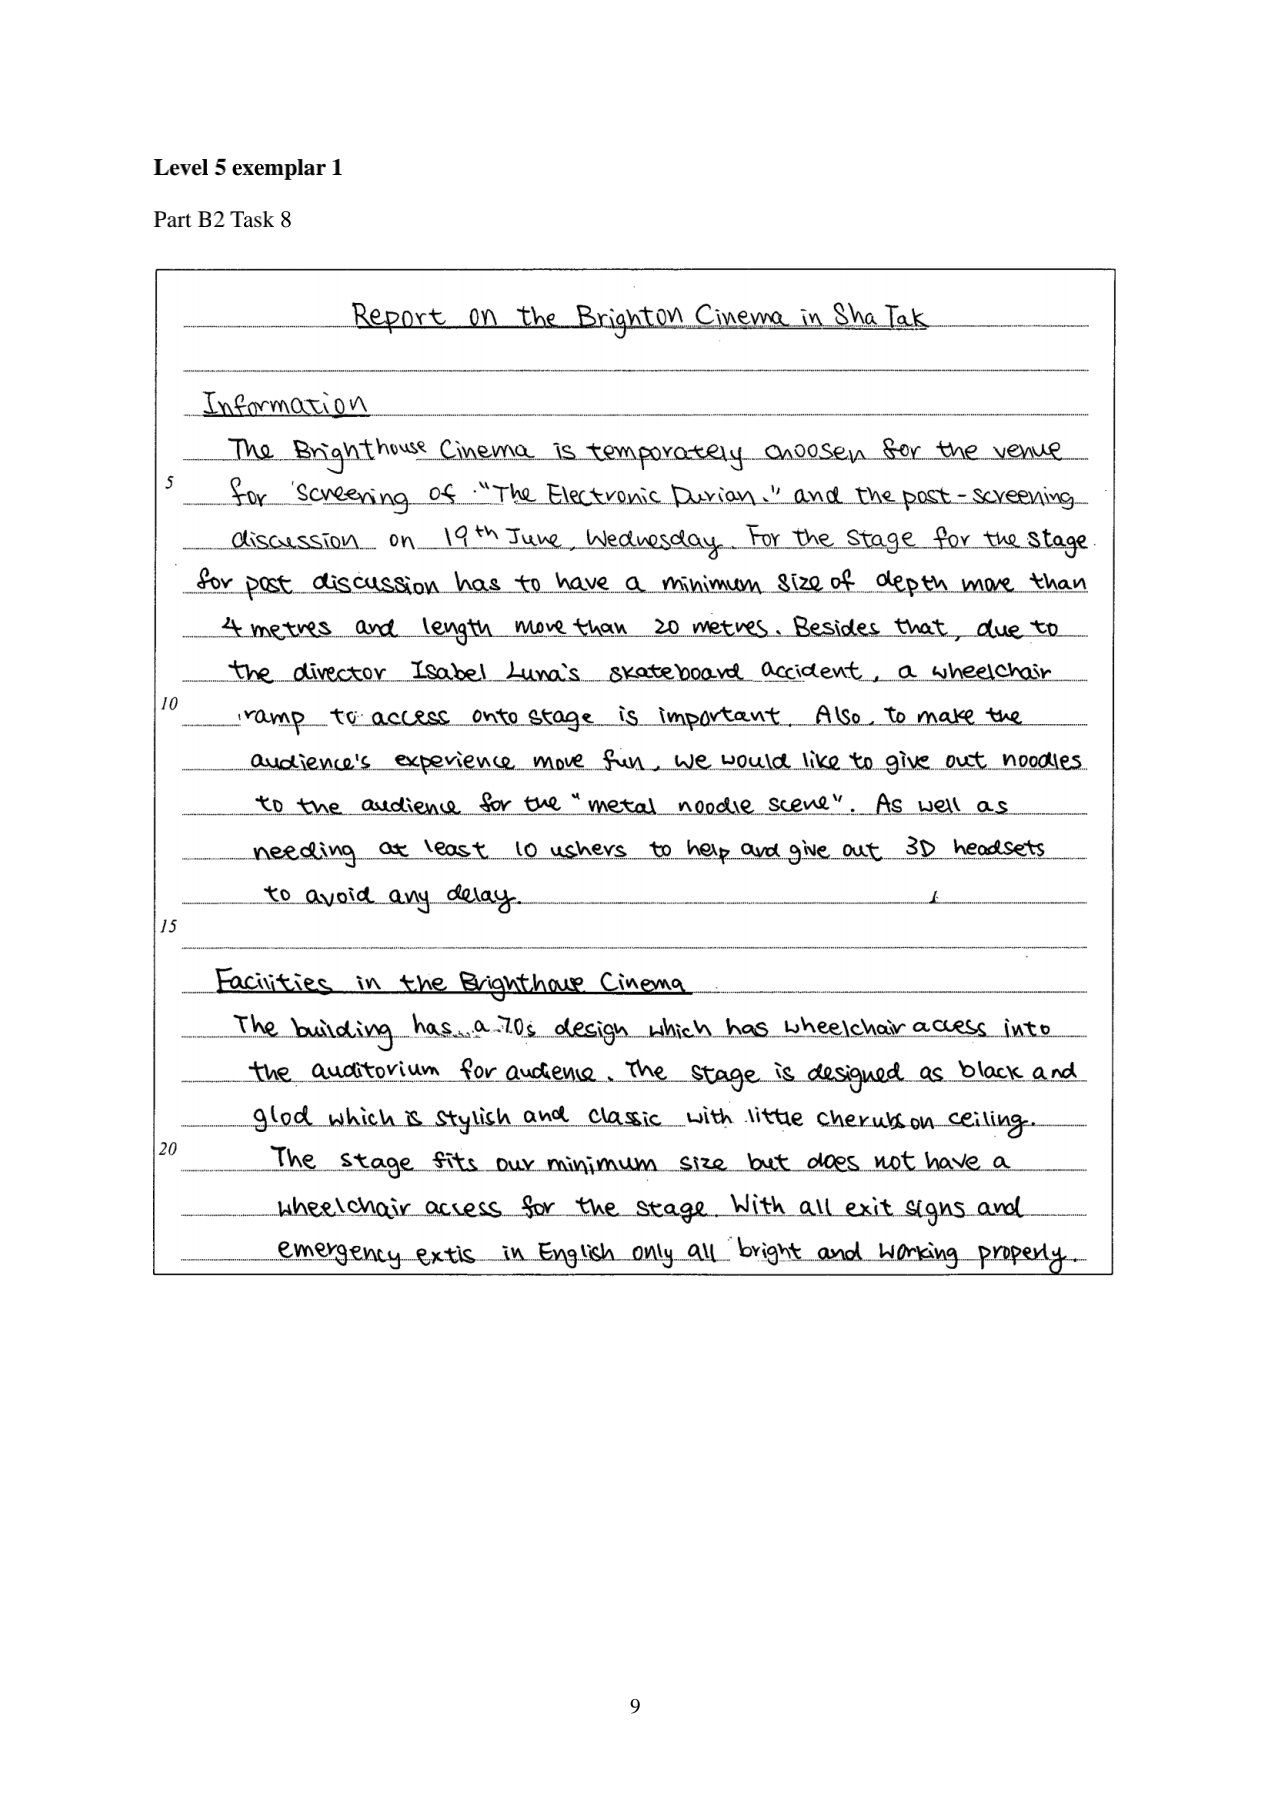 Level 5 exemplar 1
Part B2 Task 8
Report on the Brighton Cinema in Sha Tak
Information
The Brighthouse Cinema is temporately choosen for the venue
5
for screening of "The Electronic Durian." and the post-screening
discussion on 19th June, Wednesday. For the stage for the stage
for post discussion has to have a minimum size of depth more than
4 metres and length more than 20 metres. Besides that, due to
the director Isabel Luna's skateboard accident, a wheelchair
10
ramp to access onto stage is important. Also, to make the
audience's experience more fun, we would like to give out noodles
to the audience for the "metal noodle scene". As well as
needing at least 10 ushers to help and give out 3D headsets
to avoid any delay.
15
Facilities in the Brighthouse Cinema
The building has a 70s design which has wheelchair access into
the auditorium for audience. The stage is designed as black and
glod which is stylish and classic with little cherubs on ceiling.
20
The stage fits our minimum size but does not have a
wheelchair access for the stage. With all exit signs and
emergency extis in English only all bright and working properly.
9